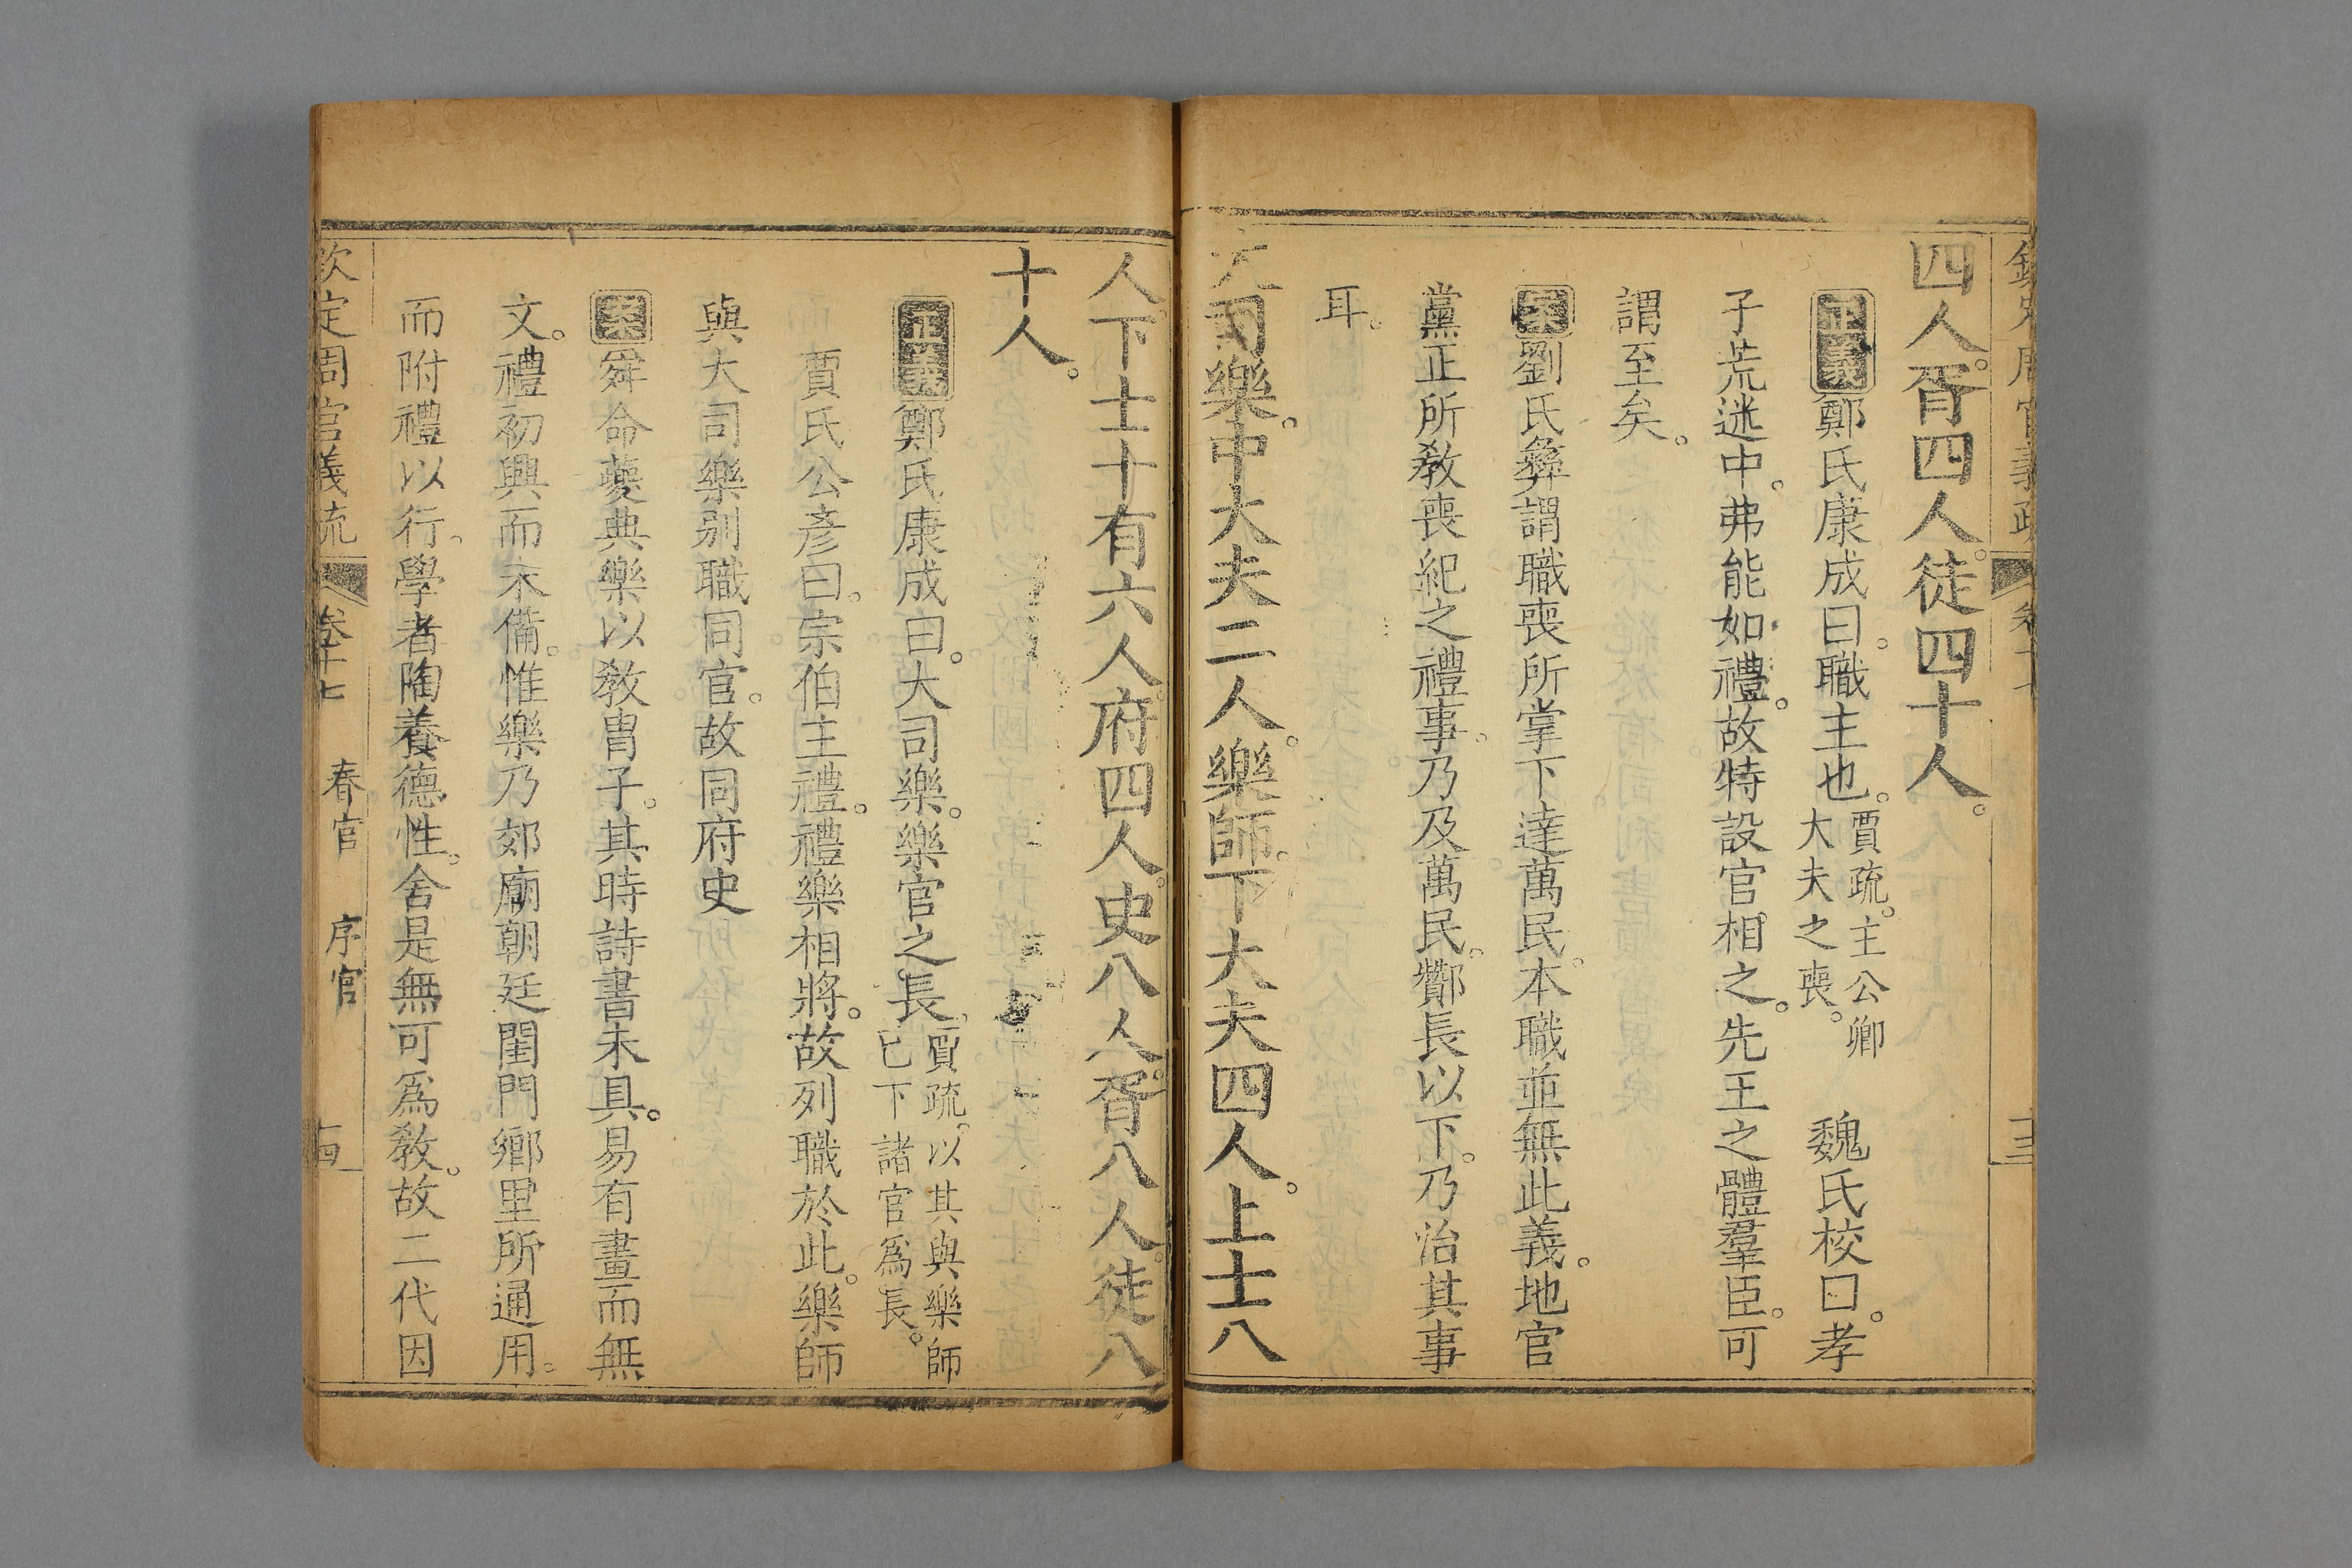 四人。胥四人。徒四十人。
正義鄭氏康成曰。職主也。賈疏。主公卿大夫之喪。 魏氏校曰。孝
子荒迷中。弗能如禮。故特設官相之。先王之體羣臣。可
謂至矣。
案劉氏彝謂職喪所掌下達萬民。本職並無此義。地官
黨正所敎喪紀之禮事。乃及萬民。酇長以下。乃治其事
耳。
大司樂。中大夫二人。樂師。下大夫四人。上士八
人。下士十有六人。府四人。史八人。胥八人。徒八
十人。
正義鄭氏康成曰。大司樂。樂官之長。賈疏。以其與樂師已下諸官爲長。
賈氏公彥曰。宗伯主禮。禮樂相將。故列職於此。樂師
與大司樂别職同官。故同府史
案舜命夔典樂以敎胄子。其時詩書未具。易有畫而無
文。禮初興而未備。惟樂乃郊廟朝廷閨門鄉里所通用。
而附禮以行。學者陶養德性。舍是無可爲敎。故二代因
欽定周官義疏 卷十七 春官 序官